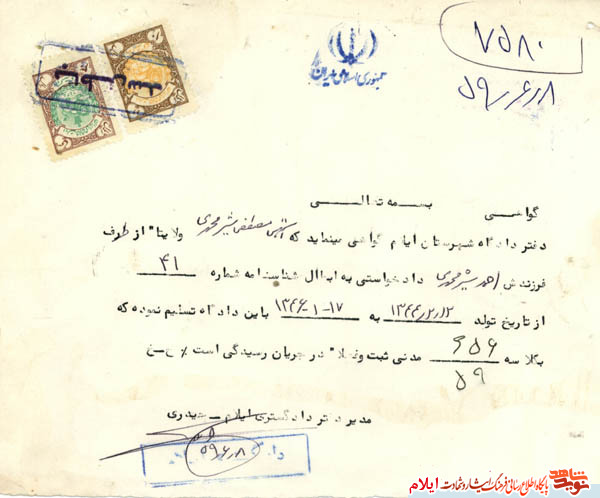 ۷۵۸۰
۵۹/۶/۸
جمهوری اسلامی ایران
بسمه تعالی
گواهی
دفتر دادگاه شهرستان ایلام گواهی مینماید که آقای مصطفی شیرمحمدی ولایتا" از طرف
فرزندش احمد شیرمحمدی دادخواستی به ابطال شناسنامه شماره ۴۱
از تاریخ تولد ۱۳۴۴/۲/۱۲ به ۱۳۴۶-۱-۱۷ باین دادگاه تسلیم نموده که
بکلاسه ۶۵۶ مدنی ثبت وفعلا" در جریان رسیدگی است٪ ح-خ
۵۹
مدیر دفتر دادگستری ایلام - حیدری
۵۹/۶/۸
نوید شاهد
پایگاه اطلاع رسانی فرهنگ ایثار و شهادت ایلام